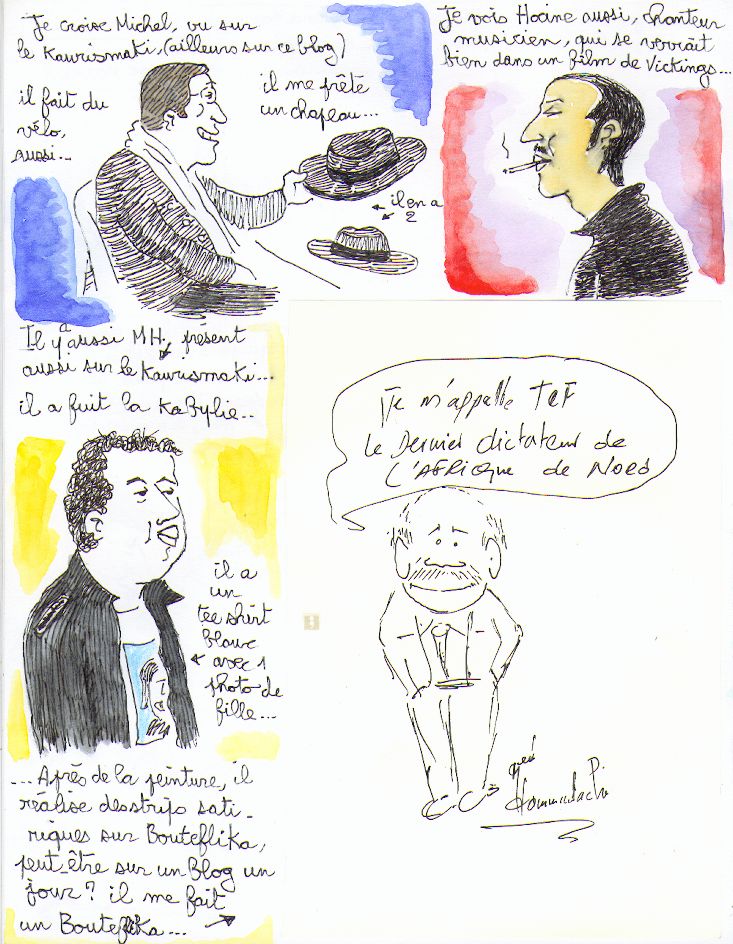 Je croise Michel, vu sur
le Kaurismaki, (ailleurs sur ce blog)
il fait du
vélo,
aussi...
il me prête
un chapeau...
il en a
2
Je vois Hocine aussi, chanteur
musicien, qui se verrait
bien dans un film de Vickings...
Il y a aussi MH, présent
aussi sur le Kaurismaki...
il a fuit la Kabylie..
il a
un
tee shirt
blanc
avec 1
photo de
fille...
...Après de la peinture, il
réalise des strips sati-
riques sur Bouteflika,
peut-être sur un Blog un
jour? il me fait
un Bouteflika...
Je m'appelle
le Dernier dictateur de
L'AFRique de Nord